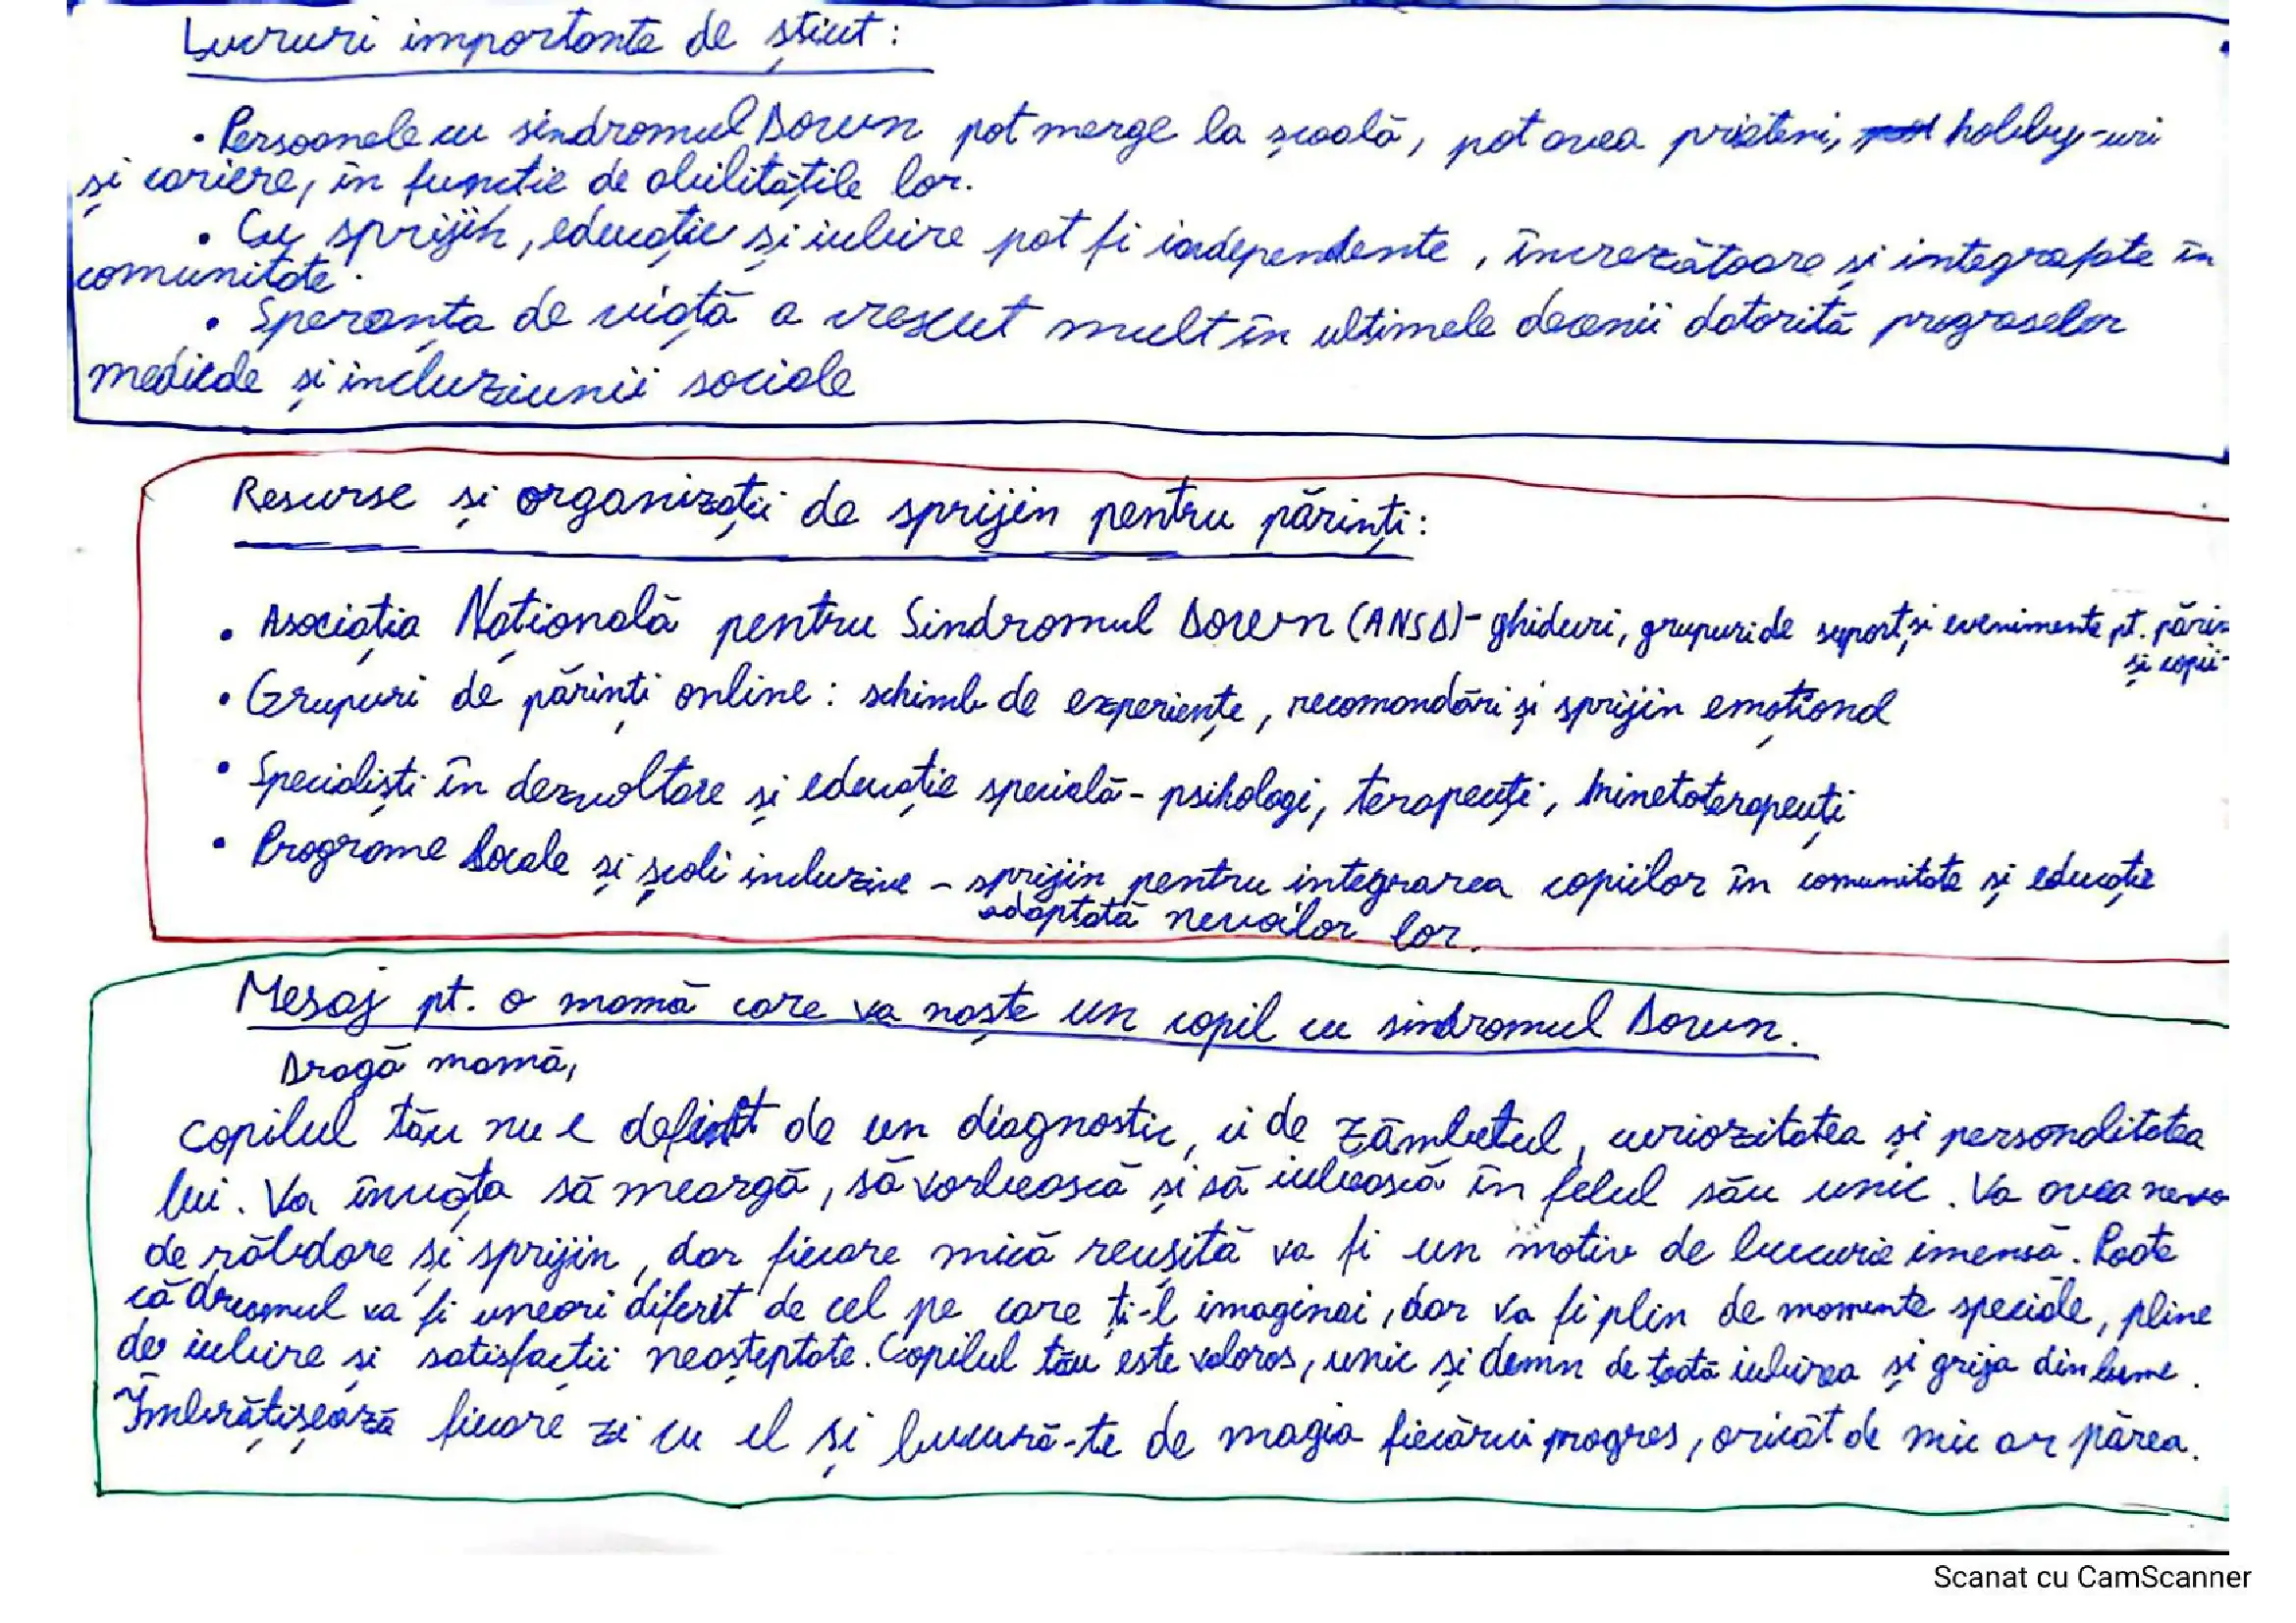 Lucruri importante de știut:
• Persoanele cu sindromul Down pot merge la școală, pot avea prieteni, hobby-uri
și cariere, în funcție de abilitățile lor.
• Cu sprijin, educație și iubire pot fi independente, încrezătoare și integrate în
comunitate.
• Speranța de viață a crescut mult în ultimele decenii datorită progreselor
medicale și incluziunii sociale
Resurse și organizații de sprijin pentru părinți:
• Asociația Națională pentru Sindromul Down (ANSD)-ghiduri, grupuri de suport și evenimente pt. părin
și copii-
• Grupuri de părinți online: schimb de experiențe, recomandări și sprijin emoțional
• Specialiști în dezvoltare și educație specială - psihologi, terapeuți, kinetoterapeuți
• Programe locale și școli incluzive - sprijin pentru integrarea copiilor în comunitate și educație
adaptată nevoilor lor.
Mesaj pt. o mamă care va naște un copil cu sindromul Down.
Dragă mamă,
Copilul tău nu e definit de un diagnostic, ci de zâmbetul, curiozitatea și personalitatea
lui. Va învăța să meargă, să vorbească și să iubească în felul său unic. Va avea nevo
de răbdare și sprijin, dar fiecare mică reușită va fi un motiv de bucurie imensă. Poate
că drumul va fi uneori diferit de cel pe care ți-l imaginai, dar va fi plin de momente speciale, pline
de iubire și satisfacții neașteptate. Copilul tău este valoros, unic și demn de toată iubirea și grija din lume.
Îmbrățișează fiecare zi cu el și bucură-te de magia fiecărui progres, oricât de mic ar părea.
Scanat cu CamScanner